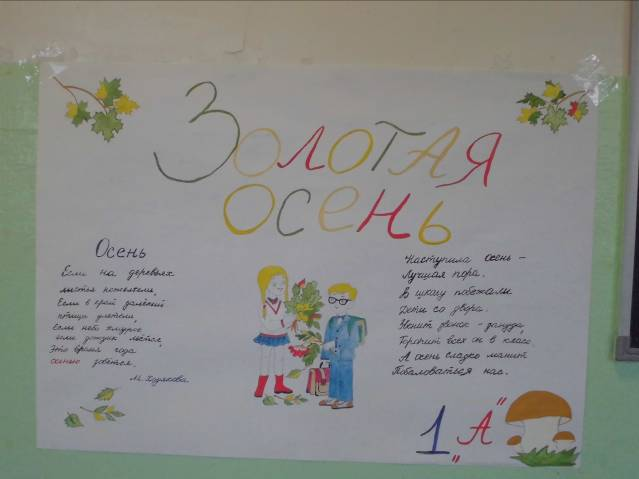 Золотая
осень
Осень
Если на деревьях
листья пожелтели,
Если в край далёкий
птицы улетели,
Если небо хмурое
если дождик льётся,
Это время года
осенью зовётся.
М. Ходякова.
Наступила осень -
Лучшая пора.
В школу побежали
Дети со двора.
Звенит звонок -
Торопит всех он в класс.
А осень сладко манит
Побаловаться нас.
1 „А"